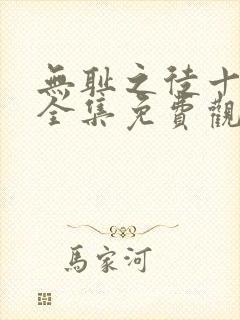 無耻之徒十
全集免費觀
馬家河